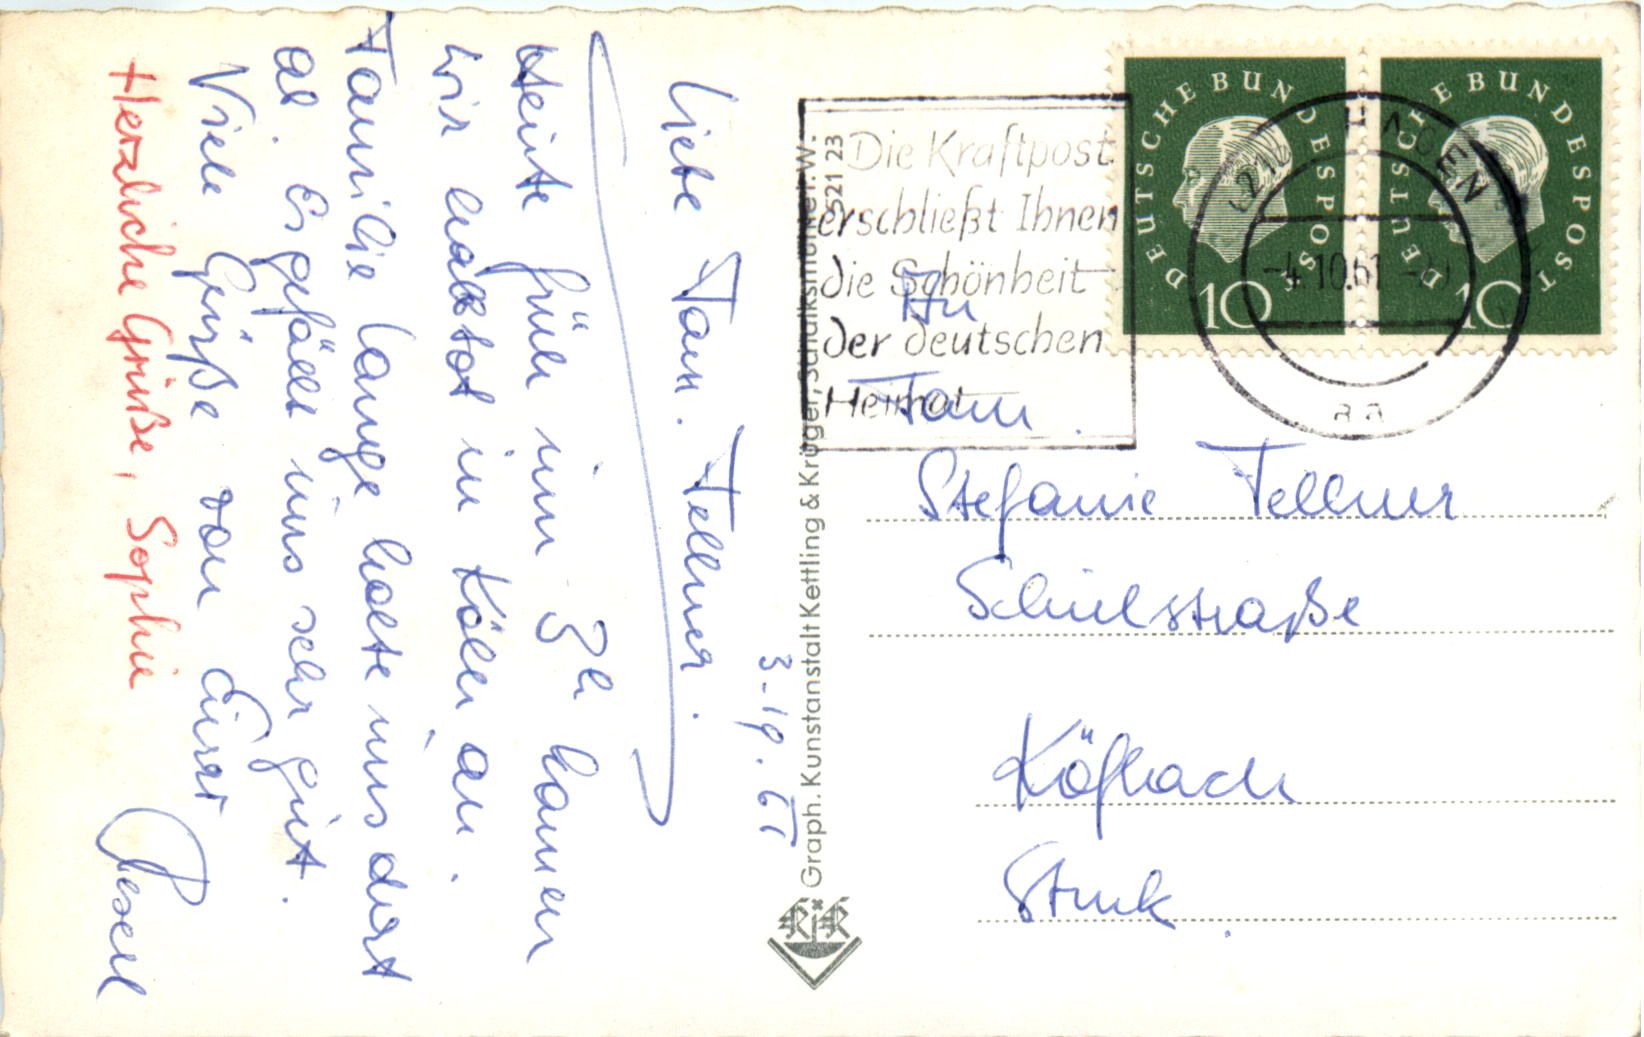 Liebe Fam. Fellner.
Heute früh um 3h kamen
wir halbtot in Köln an.
Familie Lange holte uns dort
ab. Es gefällt uns sehr gut.
Viele Grüße von Eurer
Herzliche Grüße, Sophie
3.-19.61
Graph. Kunstanstalt Kettling & Krüger, Schalksmühle i. W.
S21 23
KK
Die Kraftpost
erschließt Ihnen
die Schönheit
der deutschen
Heimat
DEUTSCHE BUNDESPOST
10
DEUTSCHE BUNDESPOST
10
HAGEN
-4.10.61
aa
An
Fam.
Stefanie Fellner
Schulstraße
Köflach
Stmk.